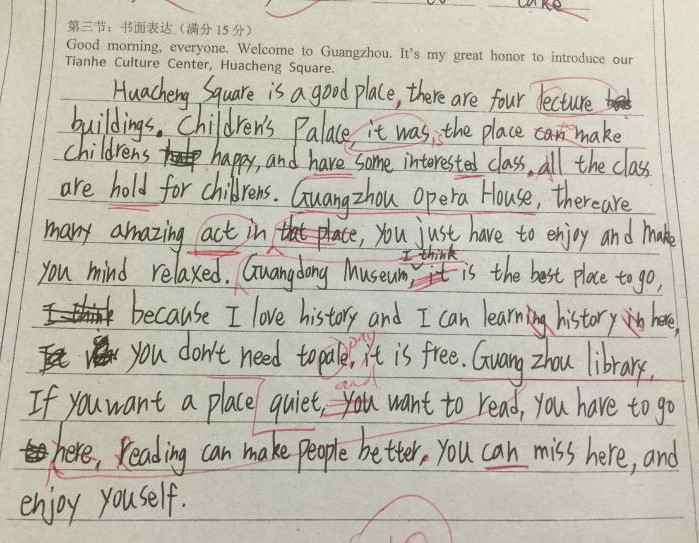 第三节：书面表达（满分 15 分）
Good morning, everyone. Welcome to Guangzhou. It's my great honor to introduce our
Tianhe Culture Center, Huacheng Square.
Huacheng Square is a good place, there are four lecture
buildings. Children's Palace, it was, the place can make
childrens happy, and have some interested class. all the class
are hold for childrens. Guangzhou Opera House, thereare
many amazing act in that place, you just have to enjoy and make
you mind relaxed. Guangdong Museum, I think it is the best place to go,
I think because I love history and I can learning history in here,
you don't need to pale, it is free. Guang zhou library,
pay
and
If you want a place quiet, you want to read, you have to go
here, Reading can make people better. you can miss here, and
enjoy youself.